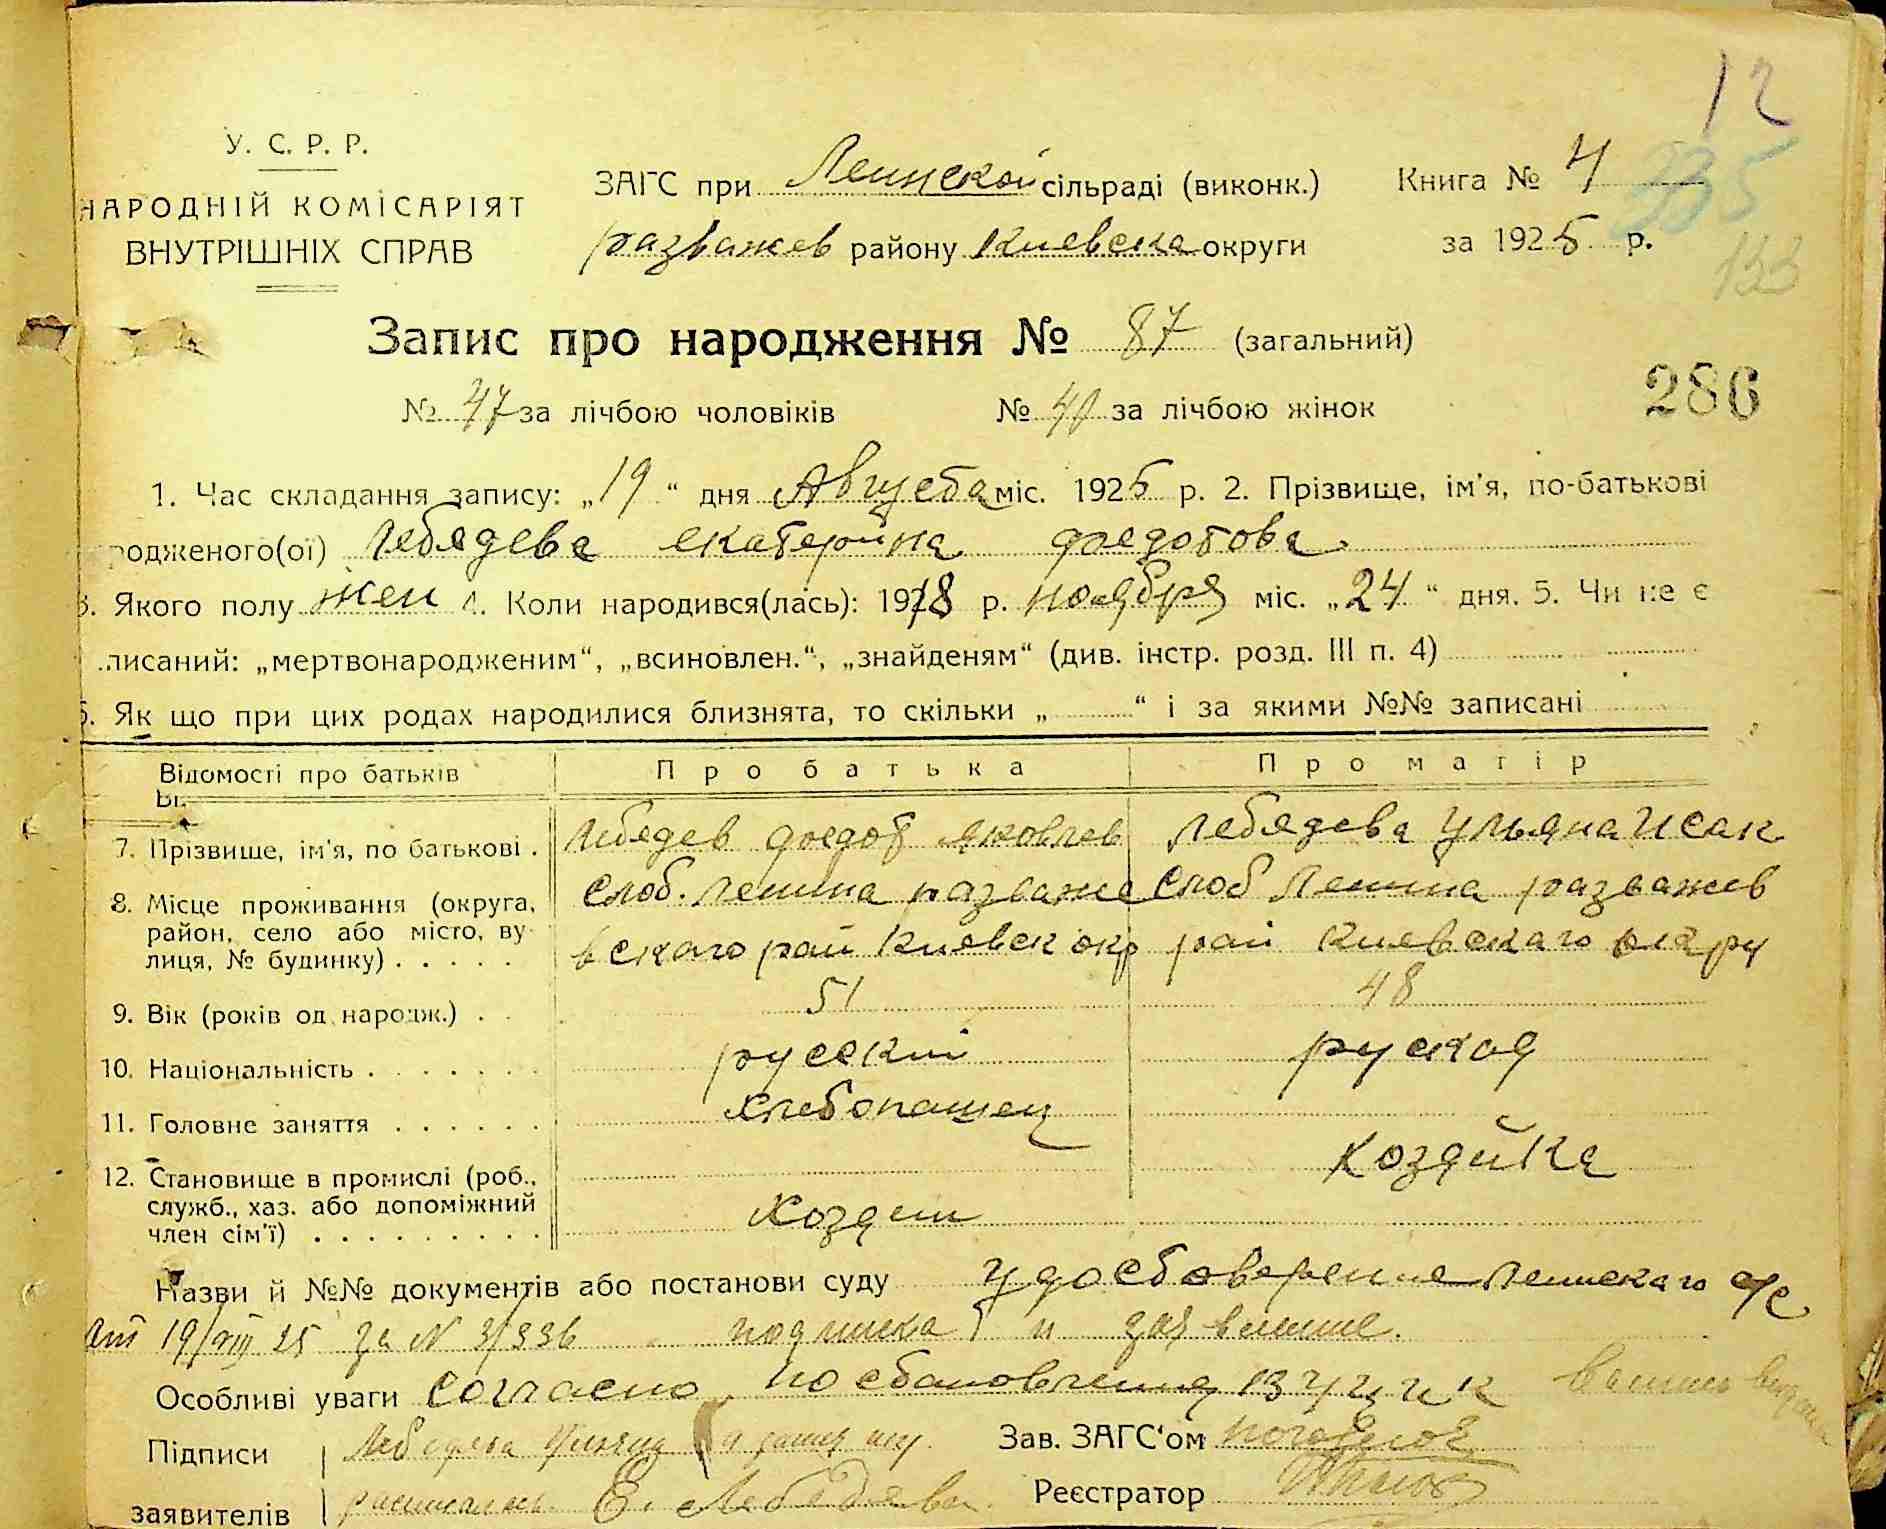 12
У. С. Р. Р.
НАРОДНІЙ КОМІСАРІЯТ
ВНУТРІШНІХ СПРАВ
ЗАГС при Леннской сільраді (виконк.) Книга № 4
235
разважев району Киевска округи за 1925 р.
133
Запис про народження № 87 (загальний)
286
№ 47 за лічбою чоловіків № 40 за лічбою жінок
1. Час складання запису: „19" дня Августа міс. 1925 р. 2. Прізвище, ім'я, по-батькові
родженого(ої) Лебядева екатерйна федотова
3. Якого полу жен 4. Коли народився(лась): 1918 р. ноября міс. „24" дня. 5. Чи не є
писаний: „мертвонародженим", „всиновлен.", „знайденям" (див. інстр. розд. III п. 4)
6. Як що при цих родах народилися близнята, то скільки „ " і за якими №№ записані
Відомості про батьків Про батька Про матір
Ві
7. Прізвище, ім'я, по батькові . Лебядев федот яковлев Лебядева Ульяна Исак
8. Місце проживання (округа, район, село або місто, вулиця, № будинку) . . . . . слоб. Ленина разваже вскаго рай Киевск окр слоб Ленина разважев рай Киевскаго округ
9. Вік (років од народж.) . . 51 48
10. Національність . . . . . . . русский руская
11. Головне заняття . . . . . . хлебопашец
12. Становище в промислі (роб., служб., хаз. або допоміжний член сім'ї) . . . . . . . . . хозяин хозяйка
Назви й №№ документів або постанови суду удостоверение Ленскаго с/с
от 19/VIII 25 за N 3/336 подписка и заявление.
Особливі уваги согласно постановления ВУЦИК
Підписи Лебедева Ульяна Зав. ЗАГС'ом
заявителів расписалась Е. Лебедева Реєстратор